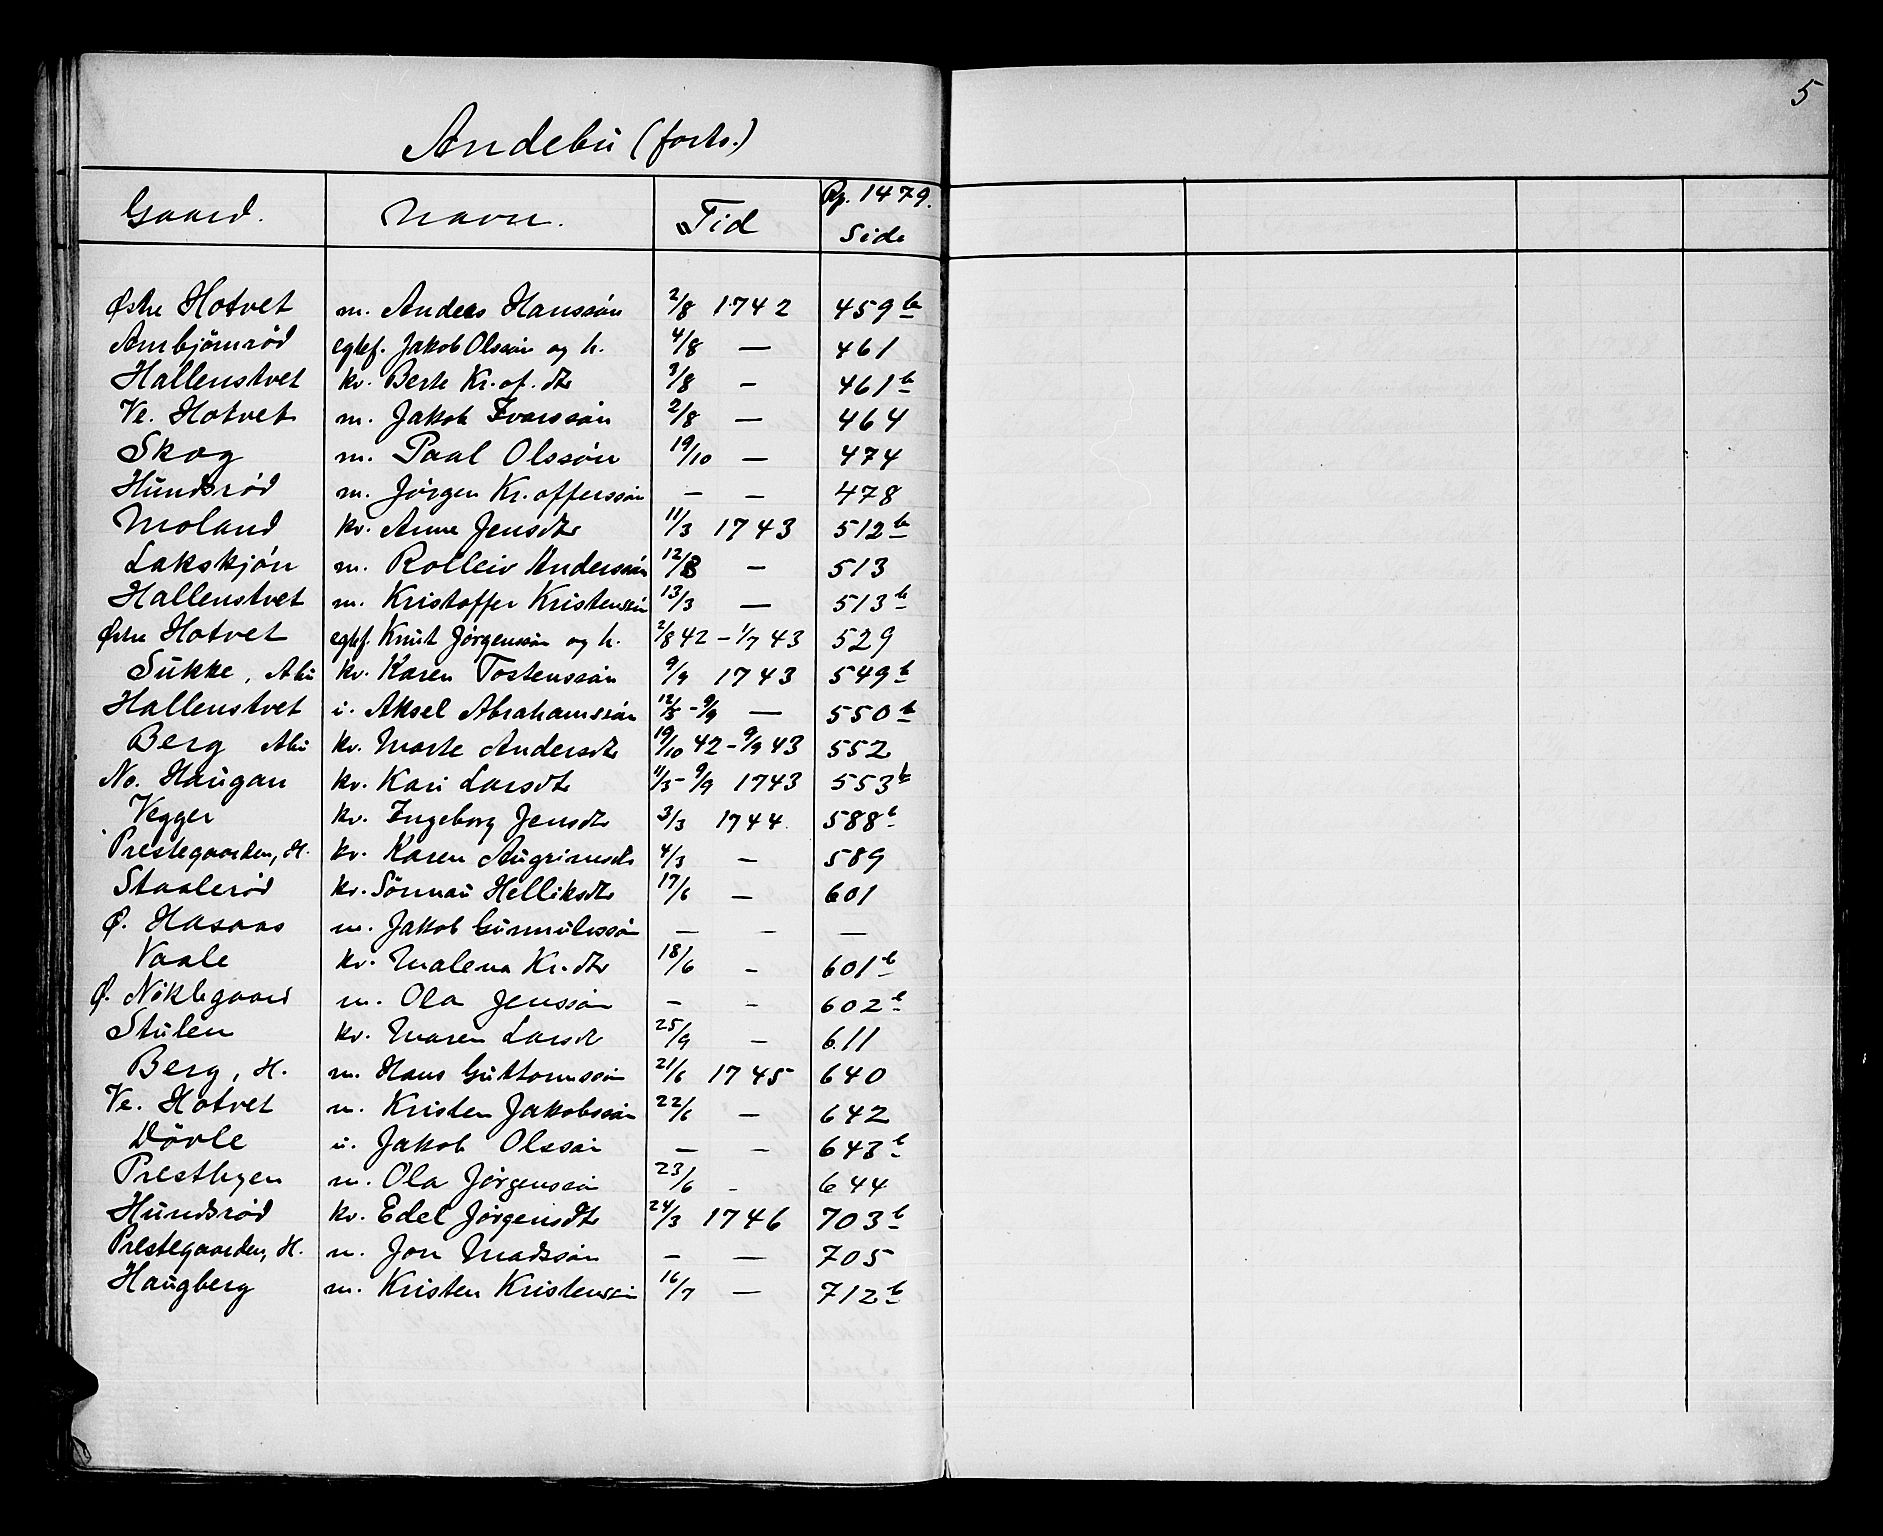 5
Andebu (forts.)
Gaard. Navn. Tid Rp. 1479. Side
Østre Hotvet m. Anders Hanssøn 2/8 1742 459 b
Arnbjørnrød egtef. Jakob Olssøn og h. 4/8 — 461
Hallenstvet kv. Berte Kr.of.dtr 3/8 - 461 b
Ve. Hotvet m. Jakob Ivarssøn 2/8 — 464
Skog m. Paal Olssøn 19/10 — 474
Hundsrød m. Jørgen Kr.offerssøn - - 478
Moland kv. Anne Jensdtr 11/3 1743 512 b
Lakskjøn m. Rolleiv Anderssøn 12/3 — 513
Hallenstvet m. Kristoffer Kristenssøn 13/3 — 513 b
Østre Hotvet egtef. Knut Jørgenssøn og h. 2/8 42 - 1/7 43 529
Sukke, Abu kv. Karen Tostenssøn 9/9 1743 549 b
Hallenstvet i. Aksel Abrahamssøn 12/3 - 9/9 — 550 b
Berg Abu kv. Marte Andersdtr 19/10 42 - 9/9 43 552
No. Haugan kv. Kari Larsdtr 11/3 - 9/9 1743 553 b
Vegger kv. Ingeborg Jensdtr 3/3 1744 588 b
Prestegaarden, H. kv. Karen Augrimsdtr 4/3 - 589
Staalerød kv. Sørnau Helliksdtr 17/6 - 601
Ø. Hasaas m. Jakob Gunnulvssøn — - —
Vaale kv. Malena Kr.dtr 18/6 - 601 b
Ø. Nøklegaard m. Ola Jenssøn - - 602 b
Stulen kv. Maren Larsdtr 25/9 - 611
Berg, H. m. Hans Guttormssøn 21/6 1745 640
Ve. Hotvet m. Kristen Jakobssøn 22/6 — 642
Døvle u. Jakob Olssøn — - 643 b
Prestbyen m. Ola Jørgenssøn 23/6 - 644
Hundsrød kv. Edel Jørgensdtr 24/3 1746 703 b
Prestegaarden, H. m. Jon Madssøn - — 705
Haugberg m. Kristen Kristenssøn 16/7 — 712 b